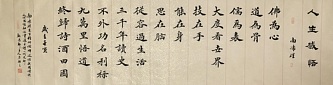 人生感悟
南懷瑾
佛為心
道為骨
儒為表
大度看世界
技在手
能在身
思在腦
從容過生活
三千年讀史
不外功名利祿
九萬里悟道
終歸詩酒田園